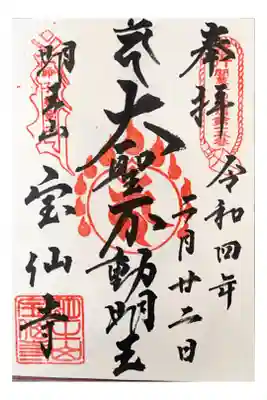 奉拝
令和四年
二月廿二日
大聖不動明王
明王山
宝仙寺